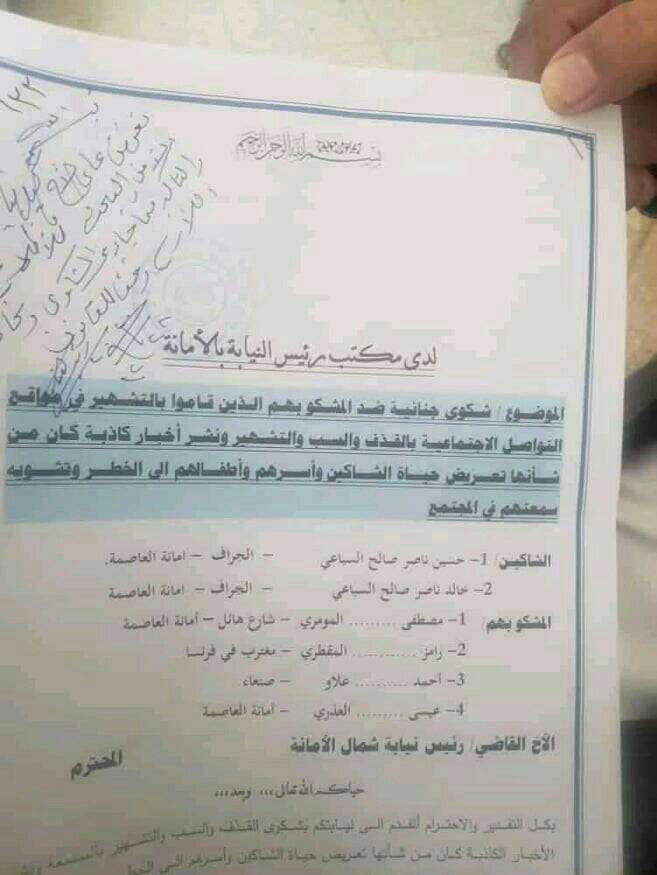 ١٢٢
بسم الله الرحمن الرحيم
لدى مكتب رئيس النيابة بالأمانة
الموضوع / شكوى جنائية ضد المشكو بهم الذين قاموا بالتشهير في مواقع
التواصل الاجتماعية بالقذف والسب والتشهير ونشر أخبار كاذبة كان من
شأنها تعريض حياة الشاكين وأسرهم وأطفالهم الى الخطر وتشويه
سمعتهم في المجتمع
الشاكين/ 1- حسين ناصر صالح السباعي - الجراف - امانة العاصمة.
2- خالد ناصر صالح السباعي - الجراف - امانة العاصمة
المشكو بهم/ 1- مصطفى ......... المومري - شارع هائل - أمانة العاصمة
2- رامز ............ المقطري - مغترب في فرنسا
3- أحمد .......... علاو - صنعاء
4- عيسى ......... العذري - أمانة العاصمة
الأخ القاضي/ رئيس نيابة شمال الأمانة
المحترم
حياكم الله تعالى ،،، وبعد،،،
بكل التقدير والاحترام أتقدم الى نيابتكم بشكوى القذف والسب والتشهير بالسمعة ونشر
الأخبار الكاذبة كان من شأنها تعريض حياة الشاكين وأسرهم الى الخطر